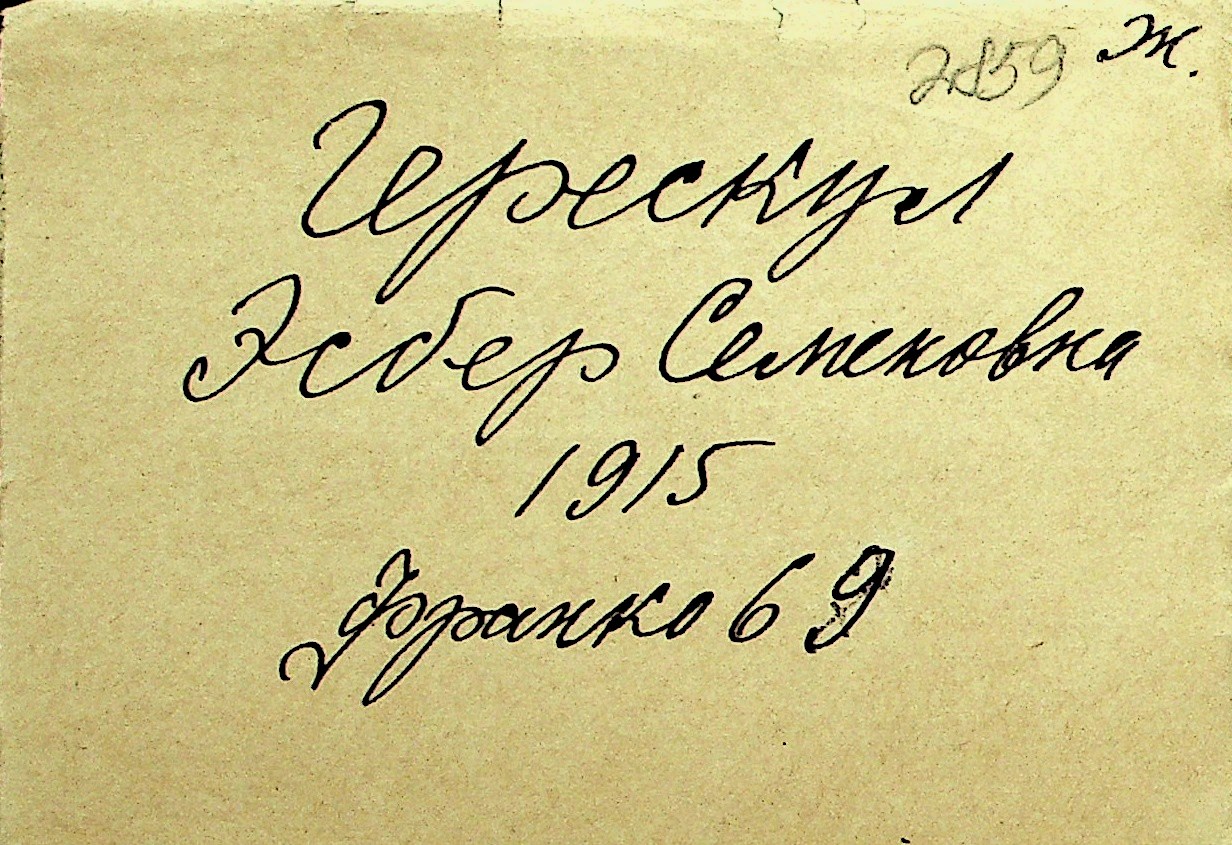 2859 Ж.
Герескул
Эсбер Семеновна
1915
Франко 69